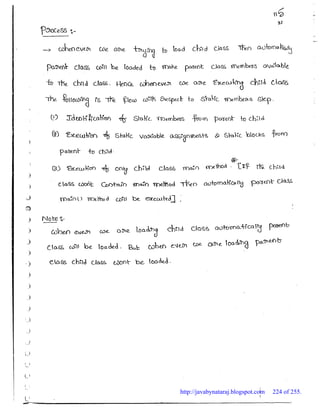 115
Process :-
→ whenever we are trying to load child class Then automatically
parent class will be loaded to make parent class members available
to The child class. Hence whenever we are Executing child class
The following is The flow with Respect to static members step.
(1) Identification of static members from parent to child.
(2) Execution of static variable assignments & static blocks from
parent to child.
(3) Execution of only child class main method. [If The child
class wont contain main method Then automatically parent class
main() method will be executed].
Note :-
when ever we are loading child class automatically parent
class will be loaded. But when ever we are loading parent
class child class wont be loaded.
http://javabynataraj.blogspot.com 224 of 255.